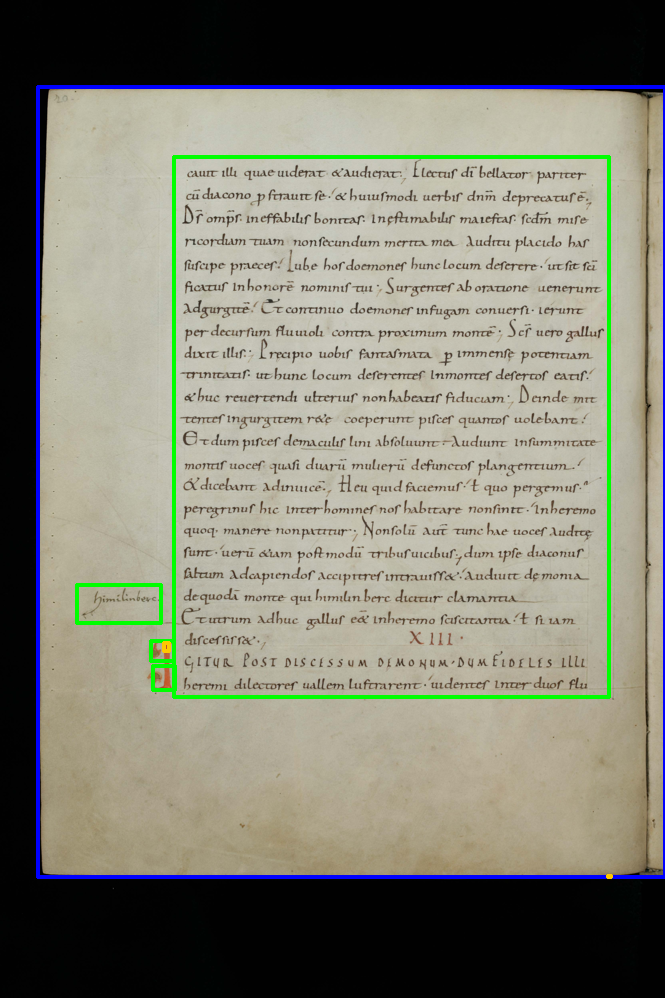 cauit illi quae uiderat & audierat; Electus dī bellator pariter
cū diacono ꝓstrauit se. & huiusmodi uerbis dnm̄ deprecatus ē;
Ds̄ omps̄. ineffabilis bonitas. Inęstimabilis maiestas. scdm̄ mise
ricordiam tuam non secundum merita mea Auditu placido has
suscipe praeces. Iube hos doemones hunc locum deserere. ut sit scī
ficatus in honorē nominis tui; Surgentes ab oratione uenerunt
Ad gurgitē. Et continuo doemones in fugam conuersi. ierunt
per decursum fluuioli contra proximum montē; Scs̄ uero gallus
dixit illis; Precipio uobis fantasmata ꝑ immensę potentiam
trinitatis. ut hunc locum deserentes In montes desertos eatis.
& huc reuertendi ulterius non habeatis fiduciam; Deinde mit
tentes in gurgitem r&e coeperunt pisces quantos uolebant.
Et dum pisces de maculis lini absoluunt Audiunt in summitate
montis uoces quasi duarū mulierū defunctos plangentium.
& dicebant Adinuicē; Heu quid faciemus. ł quo pergemus.
peregrinus hic inter homines nos habitare non sinit. In heremo
quoq. manere non patitur; Non solū aut̄ tunc hae uoces Auditę
sunt. uerū &iam postmodū tribus uicibus; dum ipse diaconus
saltum Ad capiendos accipitres intrauiss&. Audiuit dęmonia
de quodā monte qui himilinberc dicitur clamantia
himilinberc
Et utrum Adhuc gallus ess& in heremo sciscitantia. ł si iam
discessiss&;
XIII.
IGITUR POST DISCESSUM DEMONUM. DUM FIDELES ILLI
heremi dilectores uallem lustrarent. uidentes inter duos flu